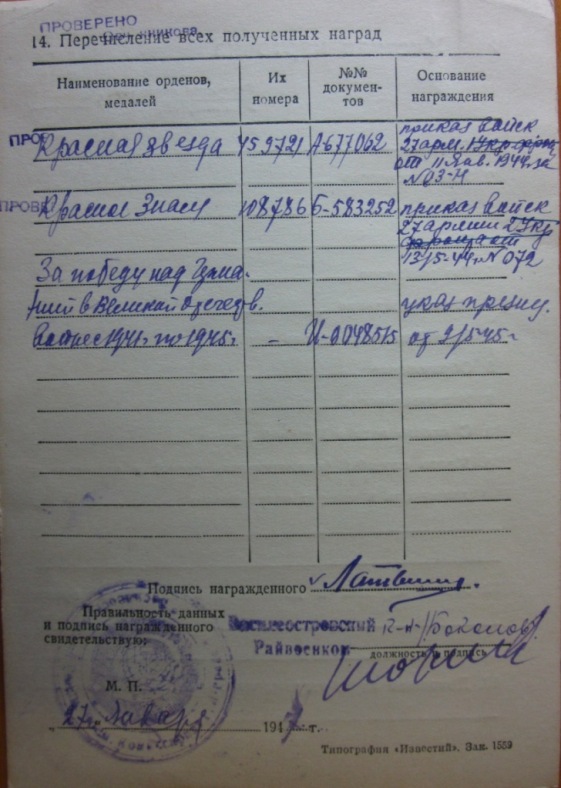 ПРОВЕРЕНО
14. Перечисление всех полученных наград
Наименование орденов, медалей
Их номера
№№ документов
Основание награждения
ПРОВ
Красная звезда 459721 А-677062 приказ войск
27 арм. 1 Укр. фрон
от 11 янв. 1944 за
№ 03-Н
ПРОВ
Красное Знамя 108786 Б-583252 приказ войск
27 армии 2 Укр
фронта от
13/5-44 г. № 072
За победу над Герма-
нией в Великой отечеств. указ презид.
войне 1941 г. по 1945 г. - И-0048515 от 9/5-45 г.
Подпись награжденного
Правильность данных
и подпись награжденного
свидетельствую:
Василеостровский
Райвоенком
должность и подпись
М. П.
27 Января 194 г.
Типография «Известий». Зак. 1559